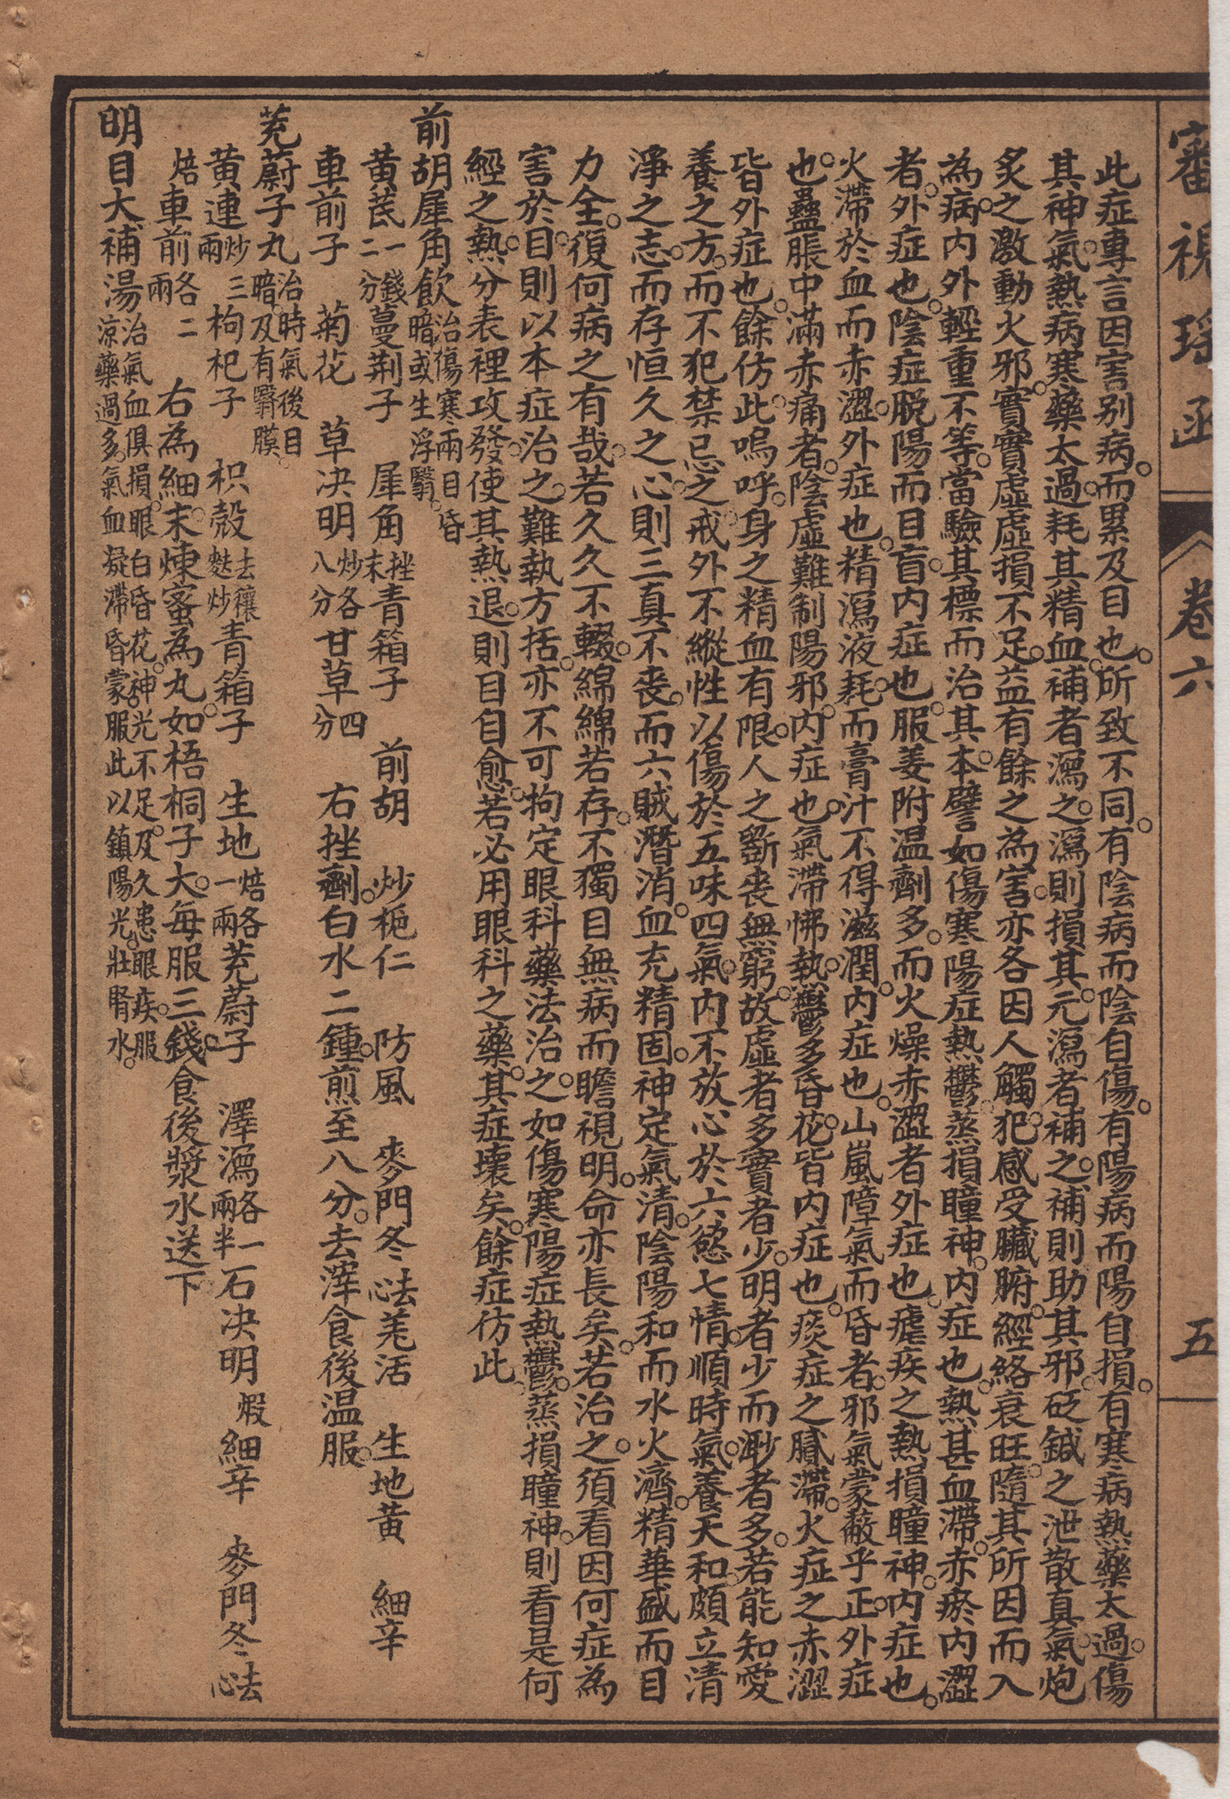 審視瑤函 卷六 五
此症專言因害别病。而累及目也。所致不同。有陰病而陰自傷。有陽病而陽自損。有寒病熱藥太過。傷
其神氣。熱病寒藥太過。耗其精血。補者瀉之。瀉則損其元。瀉者補之。補則助其邪。砭鍼之泄散真氣。炮
炙之激動火邪。實實虛虛。損不足。益有餘之為害。亦各因人觸犯感受。臟腑經絡衰旺。隨其所因而入
為病。内外輕重不等。當驗其標而治其本。譬如傷寒陽症熱鬱。蒸損瞳神。内症也。熱甚血滯。赤瘀内澀
者。外症也。陰症脱陽而目盲。内症也。服姜附温劑多。而火燥赤澀者。外症也。瘧疾之熱損瞳神。内症也。
火滯於血而赤澀。外症也。精瀉液耗。而膏汁不得滋潤。内症也。山嵐障氣而昏者。邪氣蒙蔽乎正。外症
也。蠱脹中滿赤痛者。陰虛難制陽邪。内症也。氣滯怫熱。鬱多昏花。皆内症也。痰症之膩滯。火症之赤澀
皆外症也。餘仿此。嗚呼。身之精血有限。人之斵喪無窮。故虛者多。實者少。明者少而渺者多。若能知愛
養之方。而不犯禁忌之戒。外不縱性以傷於五味四氣。内不放心於六慾七情。順時氣。養天和。頗立清
淨之志。而存恒久之心。則三真不喪。而六賊潛消。血充精固。神定氣清。陰陽和而水火濟。精華盛而目
力全。復何病之有哉。若久久不輟。綿綿若存。不獨目無病而瞻視明。命亦長矣。若治之。須看因何症為
害於目。則以本症治之。難執方括。亦不可拘定眼科藥法治之。如傷寒陽症熱鬱。蒸損瞳神。則看是何
經之熱。分表裡攻發。使其熱退。則目自愈。若必用眼科之藥。其症壞矣。餘症仿此。
前胡犀角飲 治傷寒兩目昏暗或生浮翳。
黄茋一錢二分 蔓荆子 犀角挫末 青箱子 前胡 炒梔仁 防風 麥門冬去心 羌活 生地黄 細辛
車前子 菊花 草决明炒各八分 甘草四分 右挫劑。白水二鍾。煎至八分。去滓。食後温服。
茺蔚子丸 治時氣後目暗。及有翳膜。
黄連炒三兩 枸杞子 枳殼去穰麩炒 青箱子 生地焙各一兩 茺蔚子 澤瀉各一兩半 石決明煅 細辛 麥門冬去心
焙 車前各二兩 右為細末。煉蜜為丸。如梧桐子大。每服三錢。食後漿水送下
明目大補湯 治氣血俱損。眼白昏花。神光不足。及久患眼疾。服涼藥過多。氣血凝滯昏蒙。服此以鎮陽光。壯腎水。